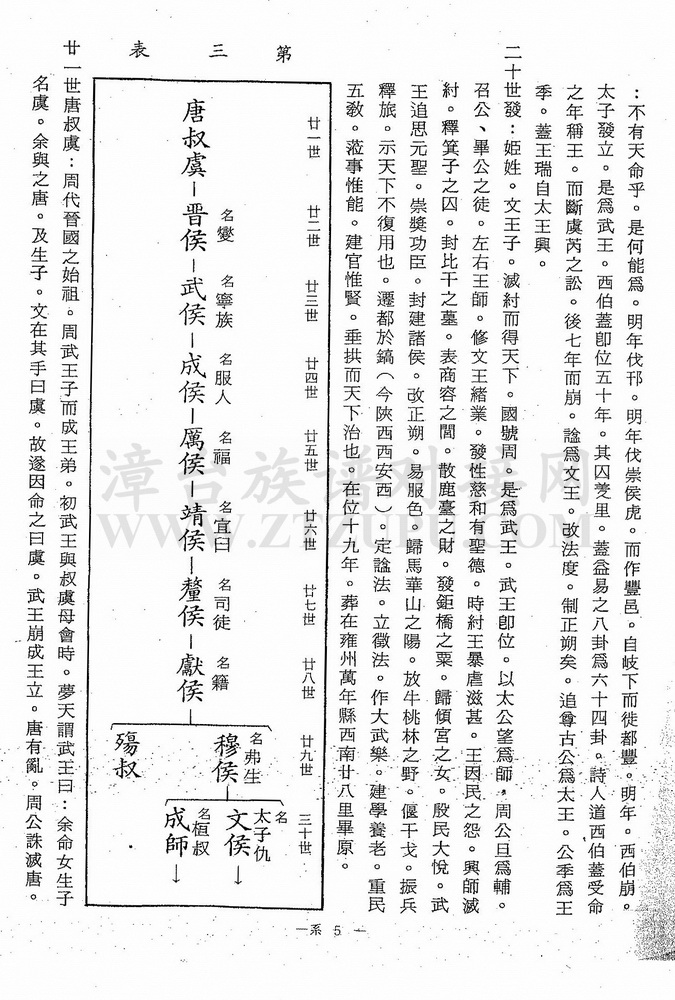 ：不有天命乎。是何能爲。明年伐邘。明年伐崇侯虎。而作豐邑。自岐下而徙都豐。明年。西伯崩。
太子發立。是爲武王。西伯蓋卽位五十年。其囚羑里。蓋益易之八卦爲六十四卦。詩人道西伯蓋受命
之年稱王。而斷虞芮之訟。後七年而崩。諡爲文王。改法度。制正朔矣。追尊古公爲太王。公季爲王
季。蓋王瑞自太王興。
二十世發：姬姓。文王子。滅紂而得天下。國號周。是爲武王。武王卽位。以太公望爲師。周公旦爲輔。
召公、畢公之徒。左右王師。修文王緒業。發性慈和有聖德。時紂王暴虐滋甚。王因民之怨。興師滅
紂。釋箕子之囚。封比干之墓。表商容之閭。散鹿臺之財。發鉅橋之粟。歸傾宮之女。殷民大悅。武
王追思元聖。崇獎功臣。封建諸侯。改正朔。易服色。歸馬華山之陽。放牛桃林之野。偃干戈。振兵
釋旅。示天下不復用也。遷都於鎬（今陝西西安西）。定諡法。立徵法。作大武樂。建學養老。重民
五敎。蒞事惟能。建官惟賢。垂拱而天下治也。在位十九年。葬在雍州萬年縣西南廿八里畢原。
第三表
廿一世 廿二世 廿三世 廿四世 廿五世 廿六世 廿七世 廿八世 廿九世 三十世
唐叔虞－晋侯－武侯－成侯－厲侯－靖侯－釐侯－獻侯－
名燮 名寧族 名服人 名福 名宜臼 名司徒 名籍
穆侯 名弗生
殤叔
文侯 名太子仇 ↓
成師 名桓叔 ↓
廿一世唐叔虞：周代晉國之始祖。周武王子而成王弟。初武王與叔虞母會時。夢天謂武王曰：余命女生子
名虞。余與之唐。及生子。文在其手曰虞。故遂因命之曰虞。武王崩成王立。唐有亂。周公誅滅唐。
－系 5 －
漳台族谱对接网
WWW.ZTZUPU.COM